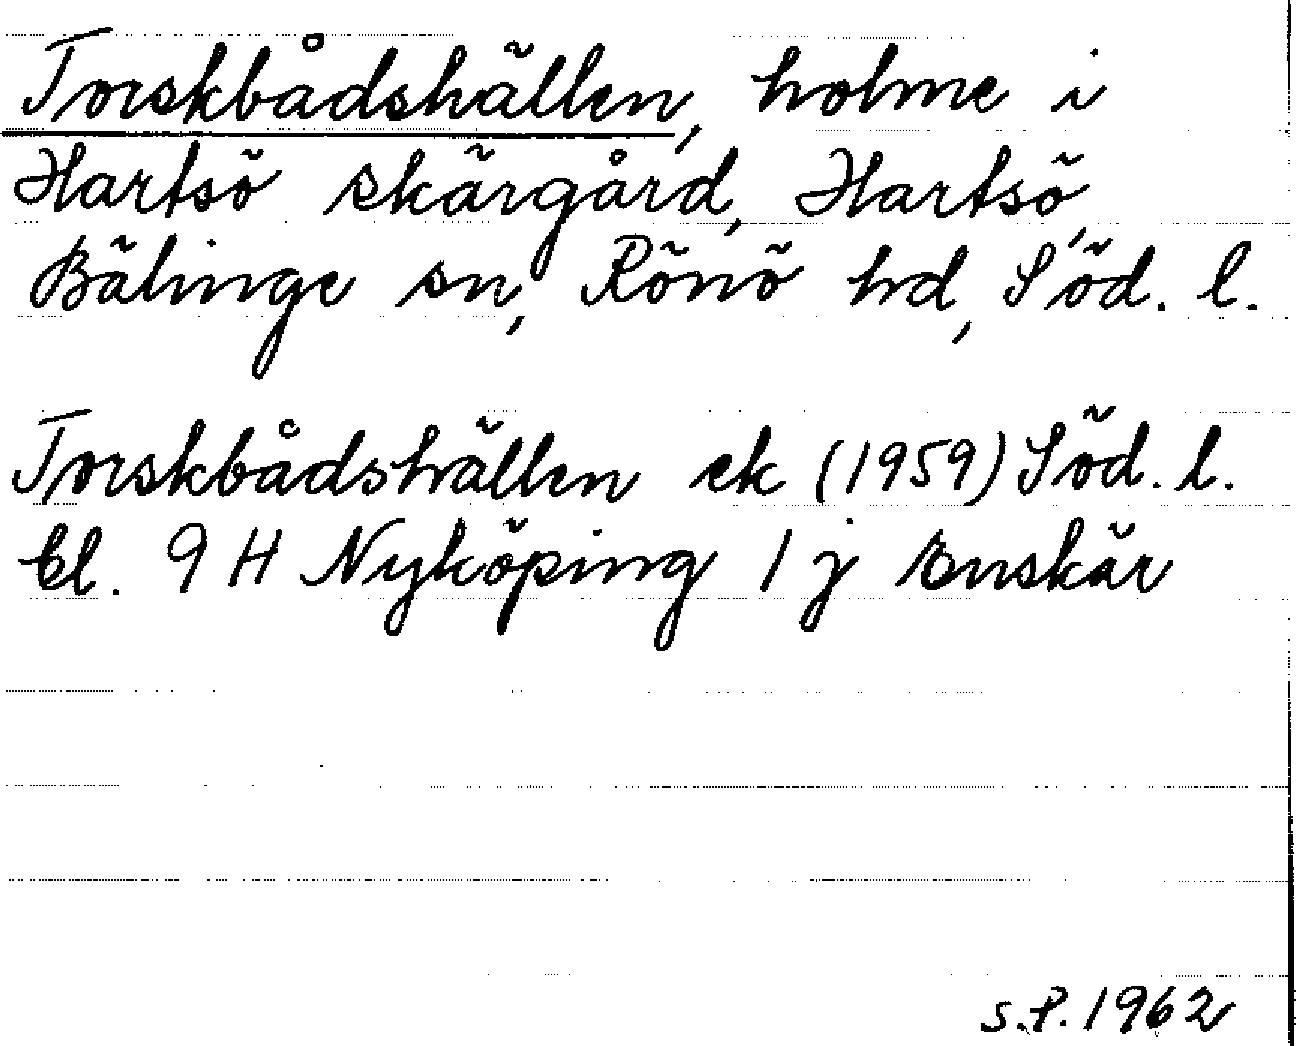 Torskbådshällen, holme i
Hartsö skärgård, Hartsö,
Bälinge sn, Rönö hd, Söd. l.
Torskbådshällen ek (1959) Söd. l.
bl. 9 H Nyköping 1 j Enskär
S.P. 1962